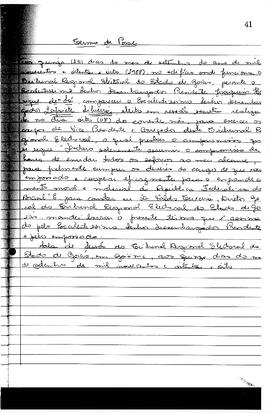 41
Termo de Posse
Aos quinze (15) dias do mes de setembro do ano de mil
novecentos e oitenta e oito (1988) no edifício onde funciona o
Tribunal Regional Eleitoral do Estado de Goiás, perante o
Excelentíssimo Senhor Desembargador Presidente
de Sá compareceu o Excelentíssimo Senhor Desembar
gador eleito em sessão realiza
da no dia oito (08) do corrente mês, para exercer os
cargos de Vice Presidente e Corregedor deste Tribunal Re
gional Eleitoral, o qual prestou o compromisso que
se segue: "Declaro solenemente o compromisso de
honra de envidar todos os esforços ao meu alcance,
para fielmente cumprir os deveres do cargo de que sou
empossado e cooperar eficazmente para o engrandeci
mento moral e material da República Federativa do
Brasil". E para constar eu Ferreira, Diretor Ge
ral do Tribunal Regional Eleitoral do Estado de Go
iás mandei lavrar o presente termo que é assina
do pelo Excelentíssimo Senhor Desembargador Presidente
e pelo empossado.
Sala de Sessão do Tribunal Regional Eleitoral do
Estado de Goiás, em Goiânia, aos quinze dias do mês
de setembro de mil novecentos e oitenta e oito